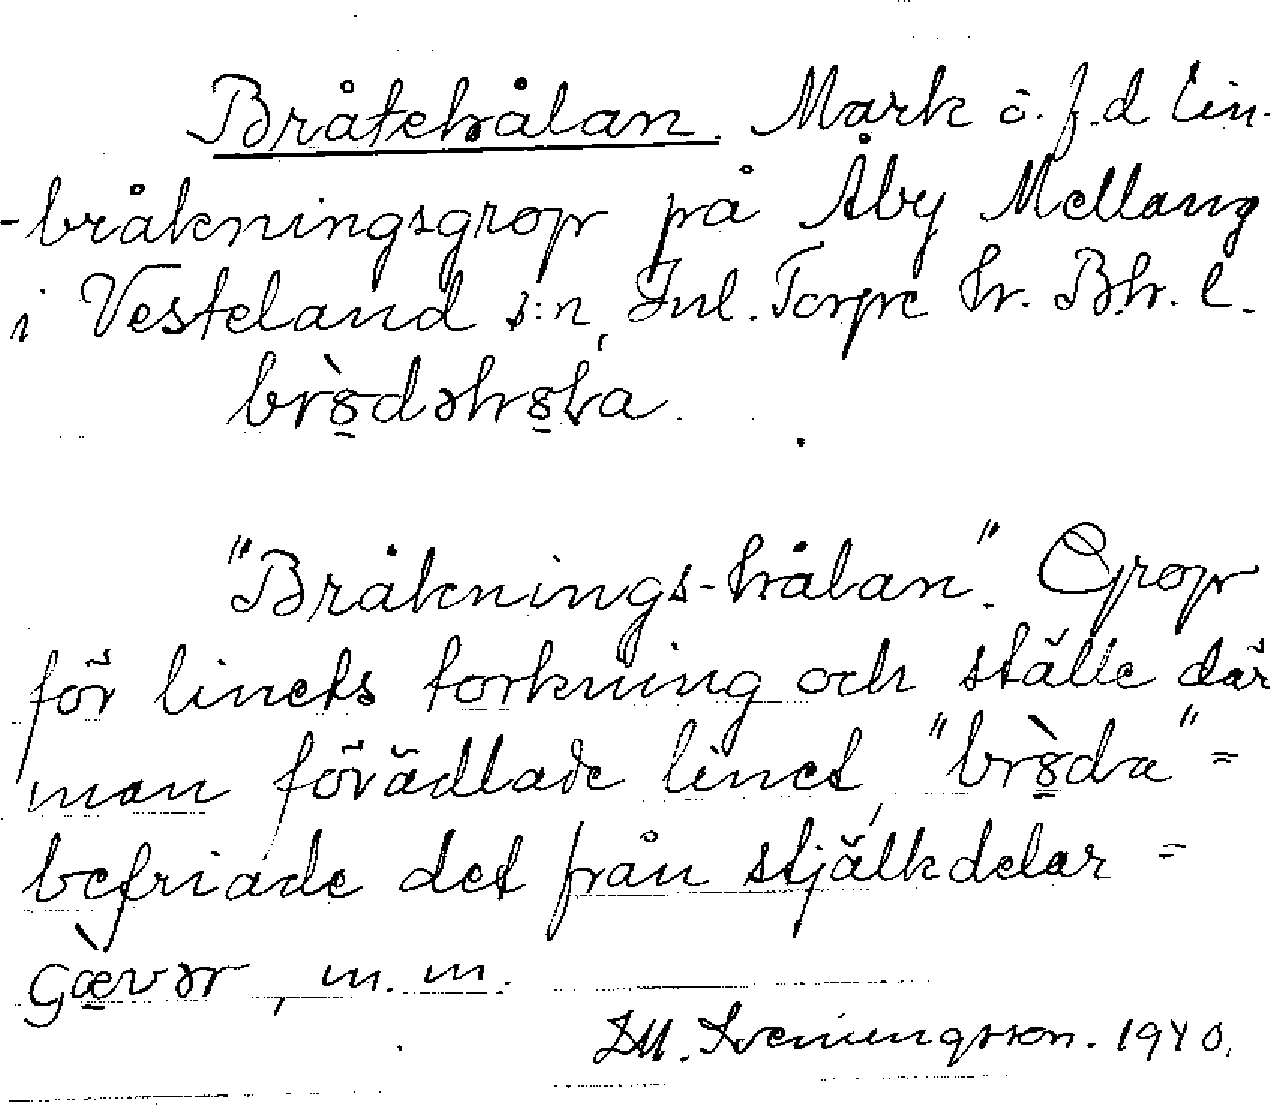 Bråtehålan. Mark o. f.d lin-
-bråkningsgrop på Åby Mellang
i Vesteland s:n, Inl. Torpe hr. Bhr. l.
"Bråknings-hålan". Grop
för linets torkning och ställe där
man förädlade linet, "br̀o̤da" =
befriade det från stjälkdelar =
gæ̀vər, m.m.
Sveningsson. 1940.